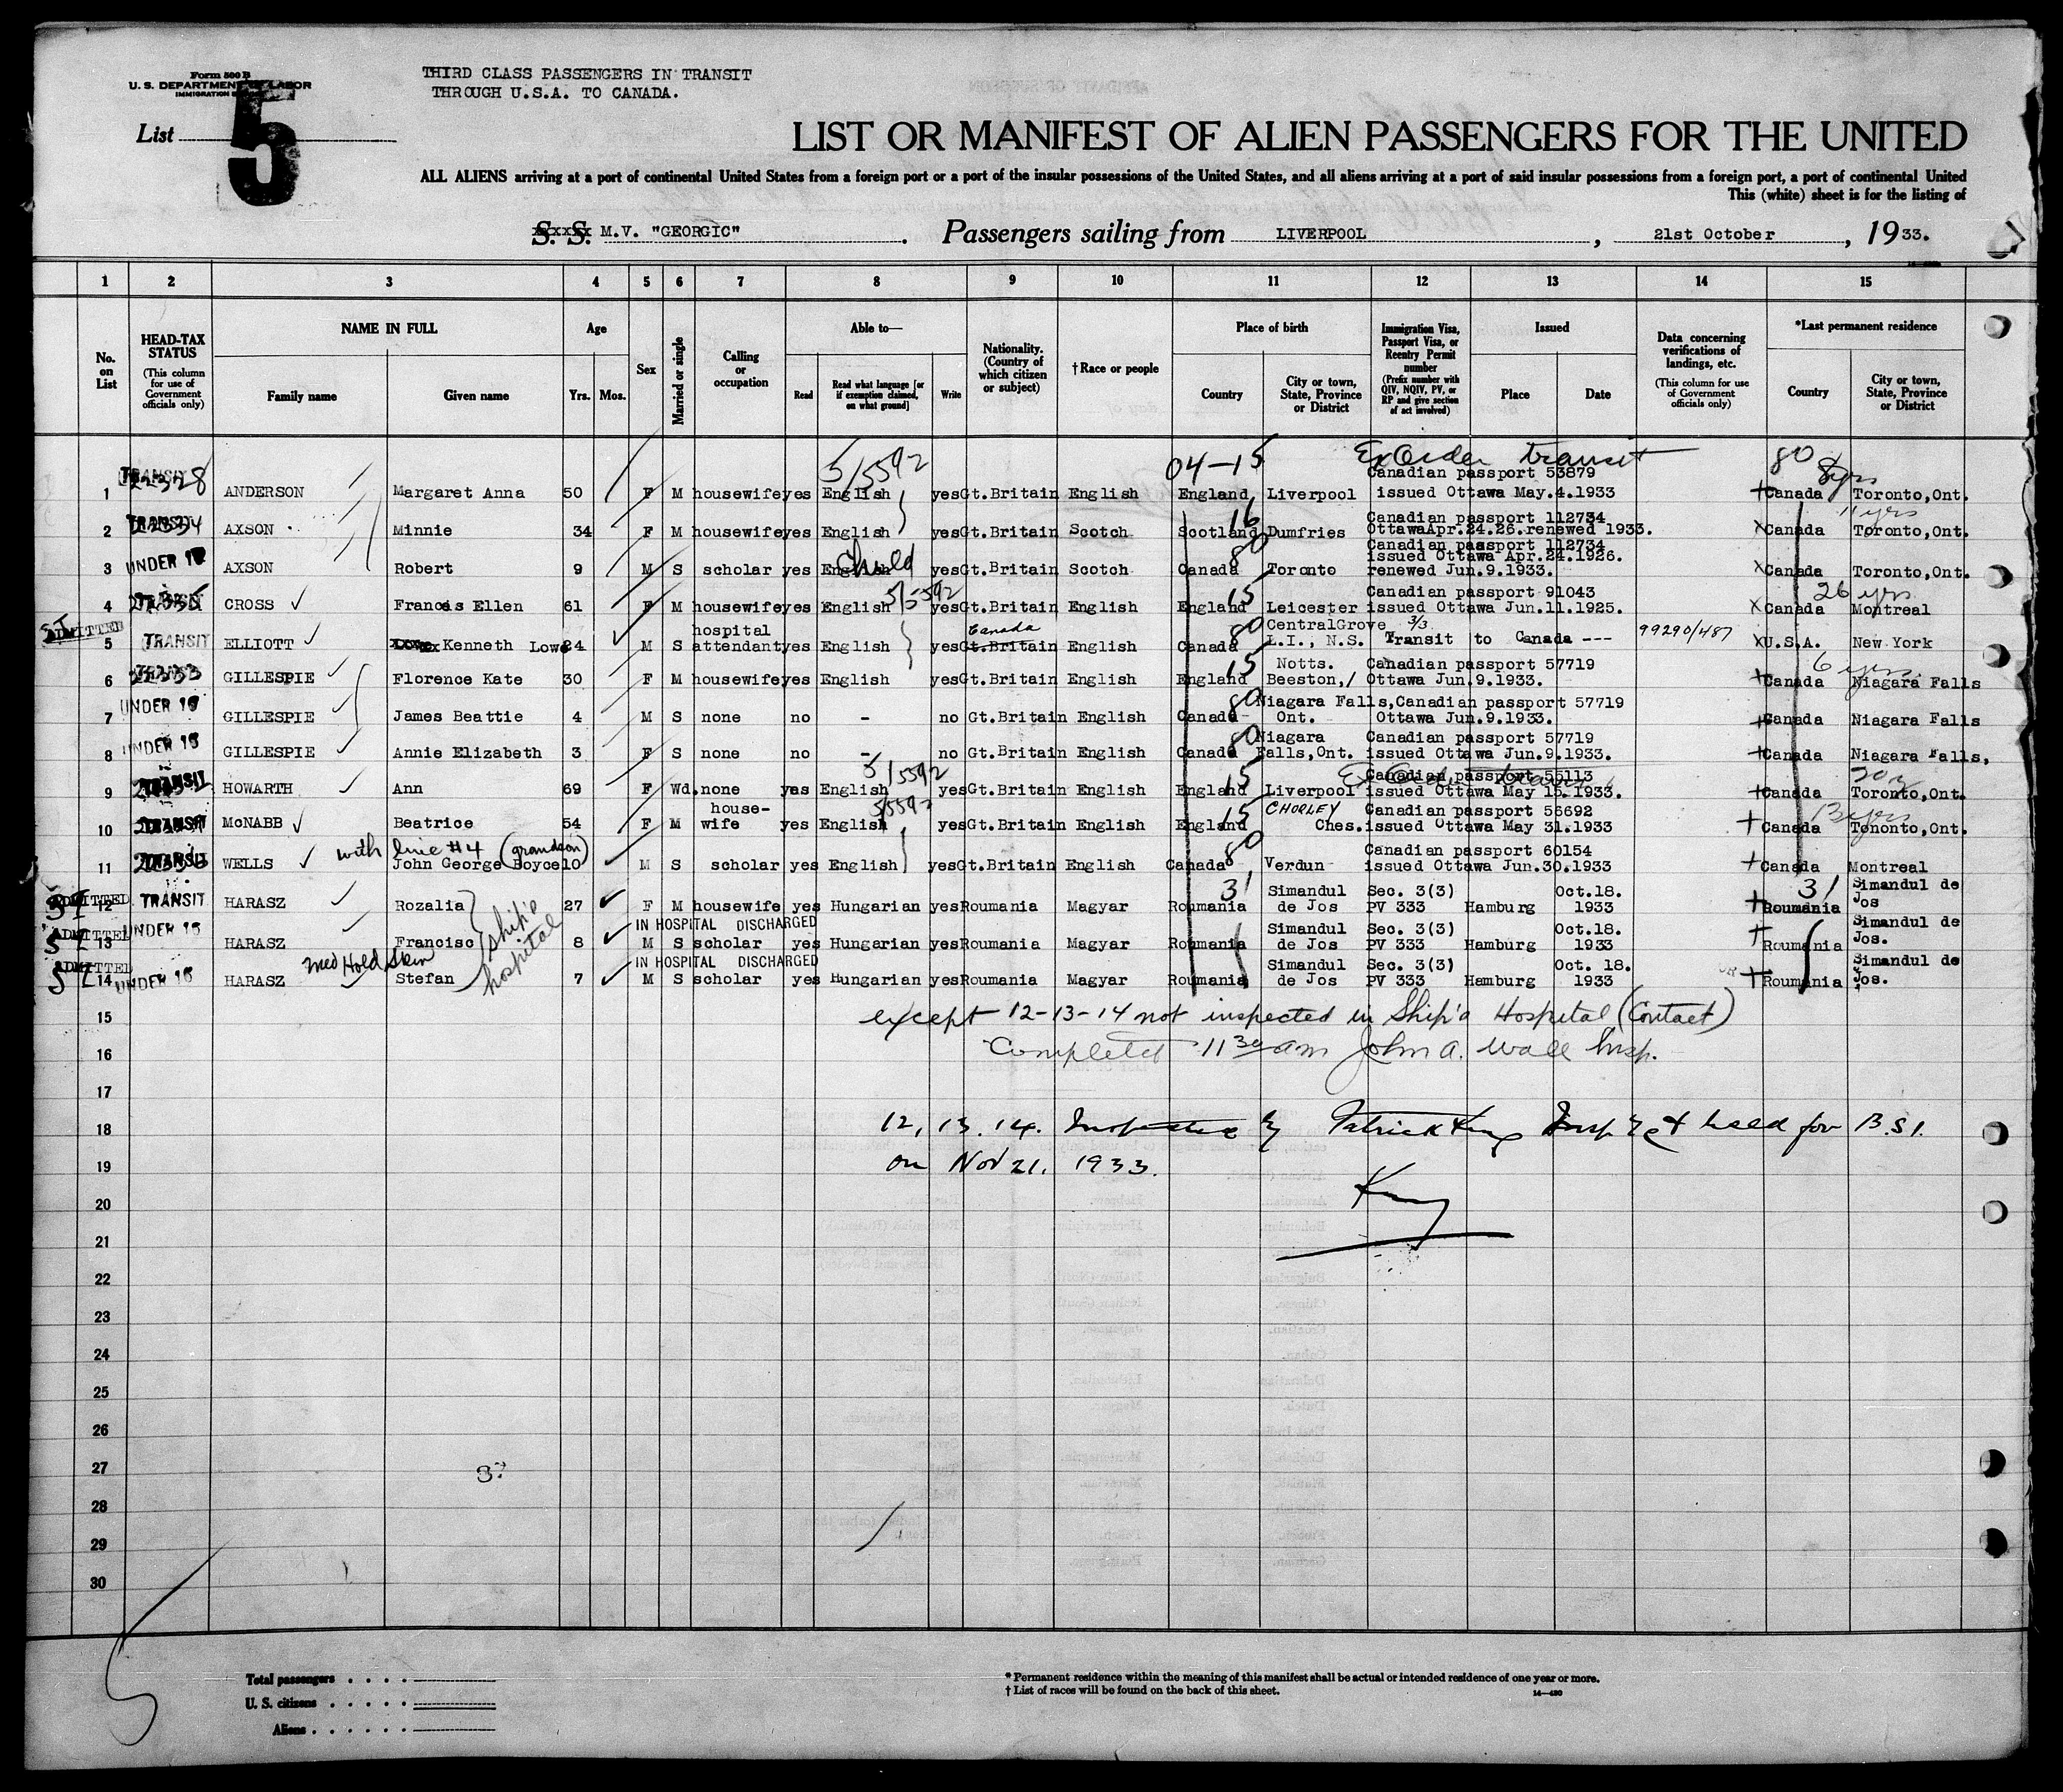 Form 500 B
U. S. DEPARTMENT OF LABOR
IMMIGRATION
THIRD CLASS PASSENGERS IN TRANSIT
THROUGH U.S.A. TO CANADA.
List 5
LIST OR MANIFEST OF ALIEN PASSENGERS FOR THE UNITED
ALL ALIENS arriving at a port of continental United States from a foreign port or a port of the insular possessions of the United States, and all aliens arriving at a port of said insular possessions from a foreign port, a port of continental United
This (white) sheet is for the listing of
S. S. M.V. "GEORGIC". Passengers sailing from LIVERPOOL, 21st October, 1933.
1 2 3 4 5 6 7 8 9 10 11 12 13 14 15
No. on List
HEAD-TAX STATUS (This column for use of Government officials only)
NAME IN FULL Family name Given name
Age Yrs. Mos.
Sex
Married or single
Calling or occupation
Able to— Read Read what language [or if exemption claimed, on what ground] Write
Nationality. (Country of which citizen or subject)
†Race or people
Place of birth Country City or town, State, Province or District
Immigration Visa, Passport Visa, or Reentry Permit number (Prefix number with QIV, NQIV, PV, or RP and give section of act involved)
Issued Place Date
Data concerning verifications of landings, etc. (This column for use of Government officials only)
*Last permanent residence Country City or town, State, Province or District
5/5592 04-15 Ex Order transit 80 8yrs
1 TRANSIT ANDERSON Margaret Anna 50 F M housewife yes English yes Gt.Britain English England Liverpool Canadian passport 53879 issued Ottawa May.4.1933 Canada Toronto,Ont.
16 11 yrs
2 TRANSIT AXSON Minnie 34 F M housewife yes English yes Gt.Britain Scotch Scotland Dumfries Canadian passport 112734 Ottawa Apr.24.26.renewed 1933. Canada Toronto,Ont.
Child 80
3 UNDER 16 AXSON Robert 9 M S scholar yes English yes Gt.Britain Scotch Canada Toronto Canadian passport 112734 issued Ottawa Apr.24.1926. renewed Jun.9.1933. Canada Toronto,Ont.
5/5592 15 26 yrs
4 CROSS Francis Ellen 61 F M housewife yes English yes Gt.Britain English England Leicester Canadian passport 91043 issued Ottawa Jun.11.1925. Canada Montreal
SI ADMITTED Canada 80 3/3
5 TRANSIT ELLIOTT Kenneth Lowe 24 M S hospital attendant yes English yes Gt.Britain English Canada CentralGrove L.I., N.S. Transit to Canada --- 99290/487 U.S.A. New York
15 6 yrs
6 GILLESPIE Florence Kate 30 F M housewife yes English yes Gt.Britain English England Notts. Beeston, Canadian passport 57719 Ottawa Jun.9.1933. Canada Niagara Falls
80
7 UNDER 16 GILLESPIE James Beattie 4 M S none no - no Gt.Britain English Canada Niagara Falls, Ont. Canadian passport 57719 Ottawa Jun.9.1933. Canada Niagara Falls
80
8 UNDER 16 GILLESPIE Annie Elizabeth 3 F S none no - no Gt.Britain English Canada Niagara Falls,Ont. Canadian passport 57719 issued Ottawa Jun.9.1933. Canada Niagara Falls,
5/5592 15
9 TRANSIT HOWARTH Ann 69 F Wd. none yes English yes Gt.Britain English England Liverpool Canadian passport 55113 issued Ottawa May 15.1933. Canada Toronto,Ont.
5/5592 15 CHORLEY 13 yrs
10 TRANSIT McNABB Beatrice 54 F M house-wife yes English yes Gt.Britain English England Ches. Canadian passport 56692 issued Ottawa May 31.1933 Canada Toronto,Ont.
with line #4 (grandson) 80
11 TRANSIT WELLS John George Boyce 10 M S scholar yes English yes Gt.Britain English Canada Verdun Canadian passport 60154 issued Ottawa Jun.30.1933 Canada Montreal
ADMITTED SI 31 31
12 TRANSIT HARASZ Rozalia 27 F M housewife yes Hungarian yes Roumania Magyar Roumania Simandul de Jos Sec. 3(3) PV 333 Hamburg Oct.18. 1933 Roumania Simandul de Jos
ADMITTED SI IN HOSPITAL DISCHARGED
13 UNDER 16 HARASZ Francisc 8 M S scholar yes Hungarian yes Roumania Magyar Roumania Simandul de Jos Sec. 3(3) PV 333 Hamburg Oct.18. 1933 Roumania Simandul de Jos.
ship's hospital
Med Hold Skin
ADMITTED SI IN HOSPITAL DISCHARGED
14 UNDER 16 HARASZ Stefan 7 M S scholar yes Hungarian yes Roumania Magyar Roumania Simandul de Jos Sec. 3(3) PV 333 Hamburg Oct. 18. 1933 Roumania Simandul de Jos.
15 except 12-13-14 not inspected in Ship's Hospital (Contact)
16 Completed 11 30 am John A. Wall Insp.
17
18 12, 13. 14. Inspected by Patrick King Insp & held for B.S.I.
19 on Nov 21, 1933.
20 King
21
22
23
24
25
26
27
28
29
30
Total passengers
U. S. citizens
Aliens
* Permanent residence within the meaning of this manifest shall be actual or intended residence of one year or more.
† List of races will be found on the back of this sheet.
14—430